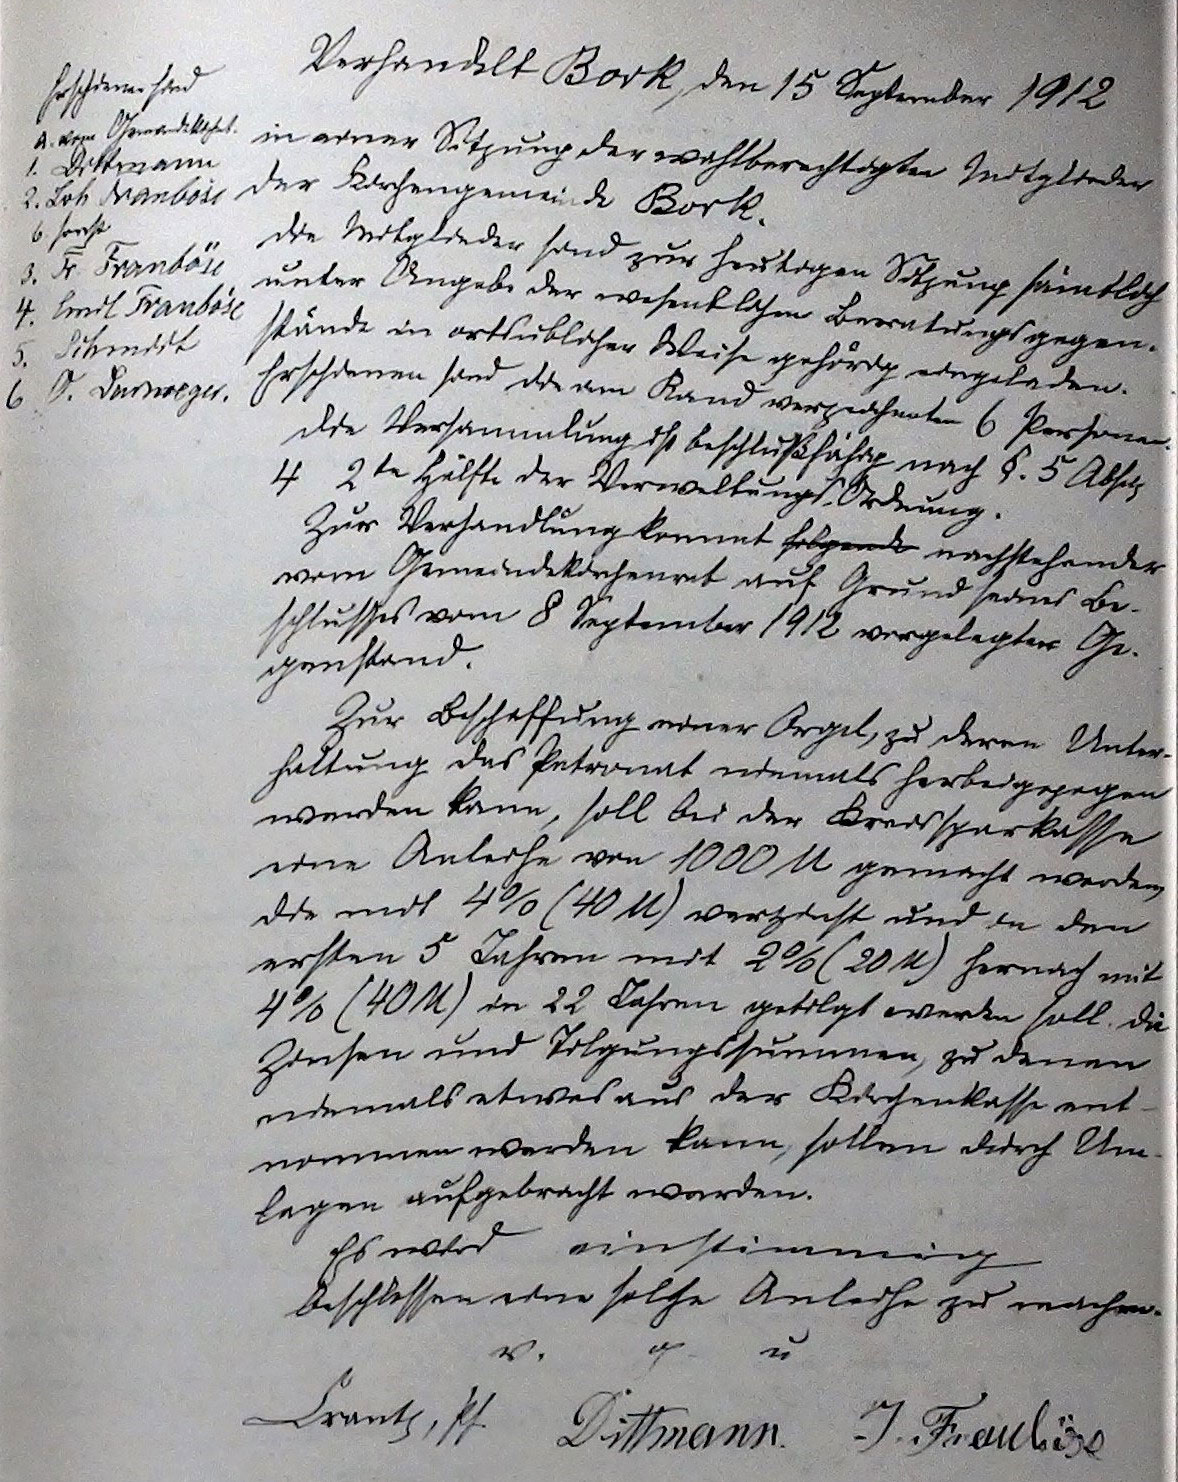 Verhandelt Bork, den 15 September 1912
Erschienen sind
a. vom Gemeindekirchenrat.
1. Dittmann
2. Joh Franböse
6 sonst
3. Fr. Franböse
4. Emil Franböse
5. Schmidt
6
in einer Sitzung der wahlberechtigten Mitglieder
der Kirchengemeinde Bork.
Die Mitglieder sind zur heutigen Sitzung sämtlich
unter Angabe der wesentlichen Beratungsgegen-
stände in ortsüblicher Weise gehörig eingeladen.
Erschienen sind die am Rand verzeichneten 6 Personen.
Die Versammlung ist beschlußfähig nach §. 5 Absatz
4 2te Hälfte der Verwaltungs-Ordnung.
Zur Verhandlung kommt folgende nachstehender
vom Gemeindekirchenrat auf Grund seines Be-
schlusses vom 8 September 1912 vorgelegter Ge-
genstand.
Zur Beschaffung einer Orgel, zu deren Unter-
haltung das Patronat niemals herbeigezogen
werden kann, soll bei der Kreissparkasse
eine Anleihe von 1000 M gemacht werden,
die mit 4% (40 M) verzinst und in den
ersten 5 Jahren mit 2% (20 M) hernach mit
4% (40 M) in 22 Jahren getilgt werden soll. Die
Zinsen und Tilgungssummen, zu denen
niemals etwas aus der Kirchenkasse ent-
nommen werden kann, sollen durch Um-
lagen aufgebracht werden.
Es wird einstimmig
beschlossen eine solche Anleihe zu machen.
v. g. u
Crantz, Pf. Dittmann. J. Franböse